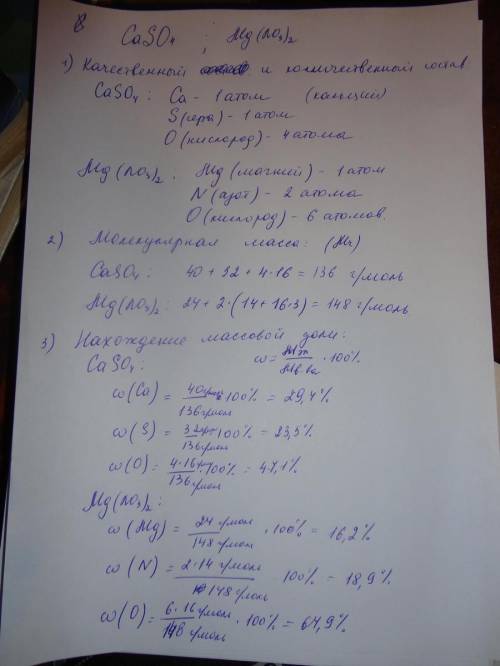 8
CaSO4 ; Mg(NO3)2
1) Качественный и количественный состав
CaSO4 : Ca - 1 атом (кальций)
S (сера) - 1 атом
O (кислород) - 4 атома
Mg(NO3)2 . Mg (магний) - 1 атом
N (азот) - 2 атома
O (кислород) - 6 атомов.
2) Молекулярная масса: (Mr)
CaSO4: 40 + 32 + 4·16 = 136 г/моль
Mg(NO3)2: 24 + 2·(14 + 16·3) = 148 г/моль
3) Нахождение массовой доли:
CaSO4: ω = · 100%
ω(Ca) = 40 / 136 г/моль · 100% = 29,4%
ω(S) = 32 / 136 г/моль · 100% = 23,5%
ω(O) = 4·16 / 136 г/моль · 100% = 47,1%
Mg(NO3)2:
ω(Mg) = 24 г/моль / 148 г/моль · 100% = 16,2%
ω(N) = 2·14 г/моль / 148 г/моль 100% = 18,9%
ω(O) = 6·16 г/моль / 148 г/моль · 100% = 64,9%